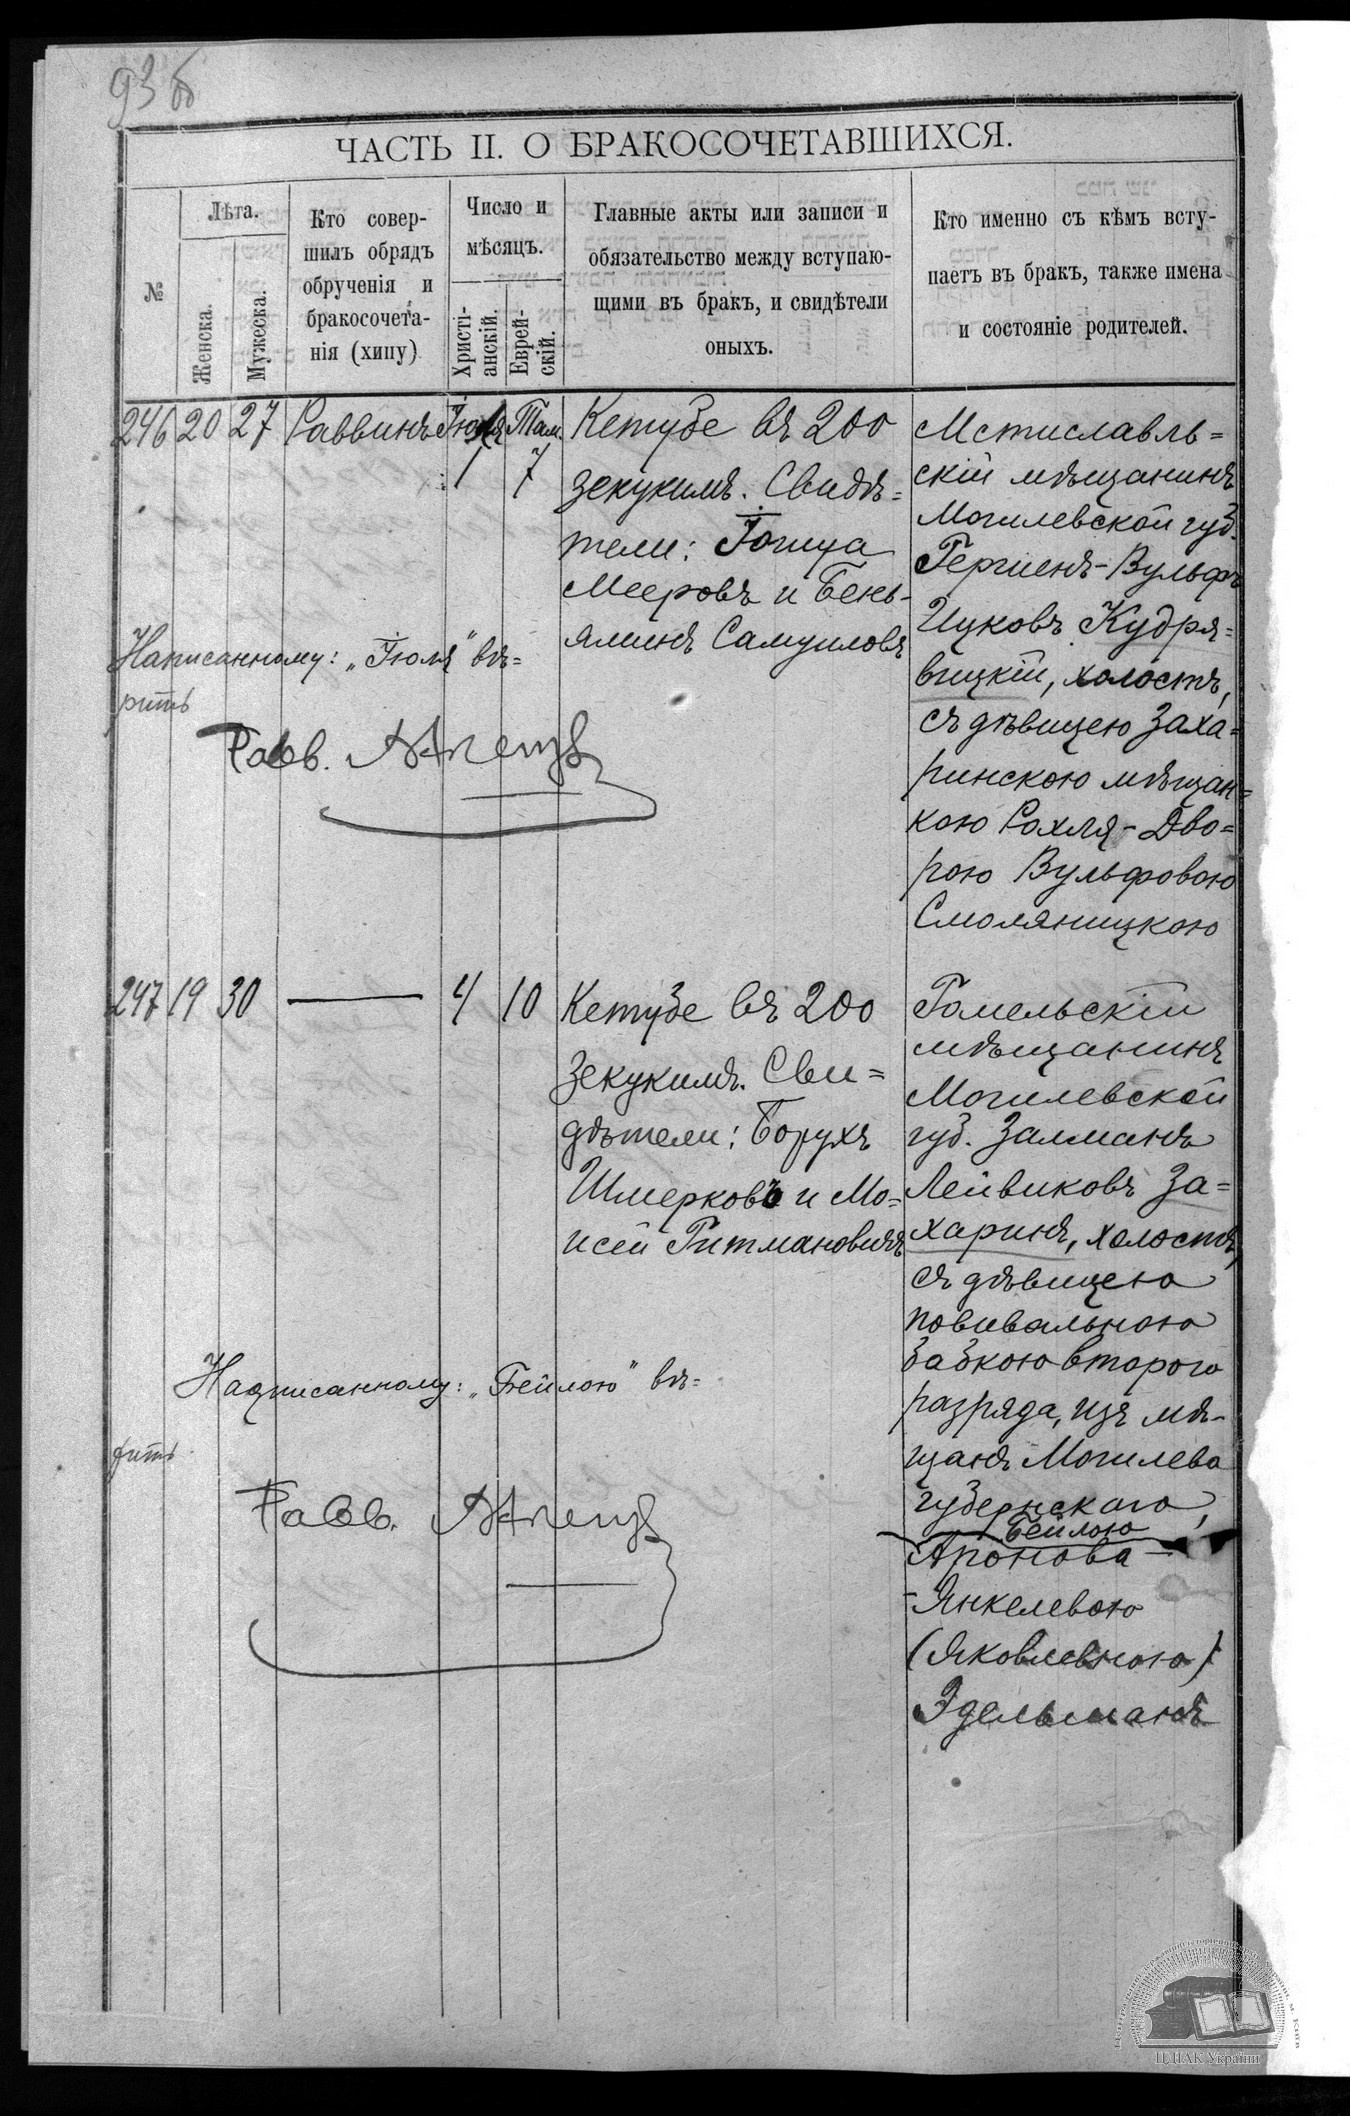 93 об
ЧАСТЬ II. О БРАКОСОЧЕТАВШИХСЯ.
№
Лѣта.
Женска.
Мужеска.
Кто совер-
шилъ обрядъ
обрученія и
бракосочета-
нія (хипу)
Число и
мѣсяцъ.
Христі-
анскій.
Еврей-
скій.
Главные акты или записи и
обязательство между вступаю-
щими въ бракъ, и свидѣтели
оныхъ.
Кто именно съ кѣмъ всту-
паетъ въ бракъ, также имена
и состояніе родителей.
246 20 27 Раввинъ Іюля 1 Там. 7
Кетубе въ 200
зекукимъ. Свидѣ=
тели: Іошуа
Мееровъ и Бень-
яминъ Самуиловъ
Мстиславль=
скій мѣщанинъ
Могилевской губ.
Гершенъ-Вульфъ
Ицковъ Кудря=
вицкій, холостъ,
съ дѣвицею Заха=
ринскою мѣщан=
кою Рохля-Дво=
рою Вульфовою
Смоляницкою
Написанному: „Іюля" вѣ=
рить
Равв.
247 19 30 — 4 10
Кетубе въ 200
зекукимъ. Сви=
дѣтели: Борухъ
Шмерковъ и Мо=
исей Гитмановичъ
Гомельскій
мѣщанинъ
Могилевской
губ. Залманъ
Лейвиковъ За=
харинъ, холостъ,
съ дѣвицею
повивальною
бабкою второго
разряда, изъ мѣ-
щанъ Могилева
губернскаго,
Бейлою
Аронова-
-Янкелевою
(Яковлевною)
Эдельманъ
Надписанному: „Бейлою" вѣ=
рить.
Равв.
ЦДІАК України